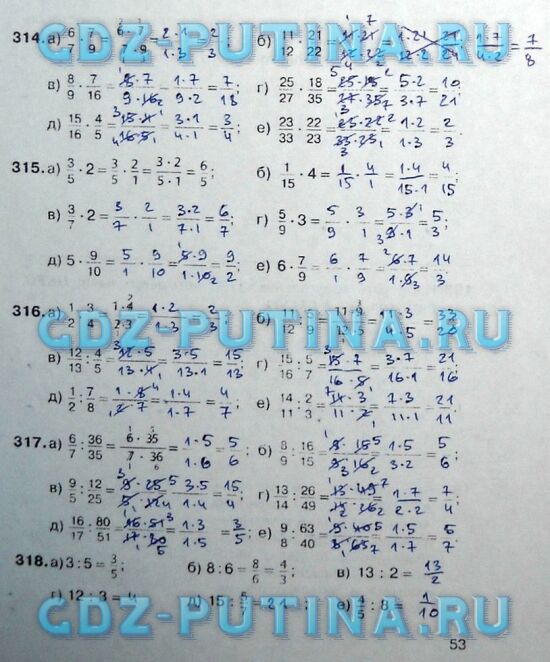 GDZ-PUTINA.RU
314. а) 6/7 · 7/9 = = 2·1/1·3 = 2/3; б) 11/12 · 21/22 = = 7/8
в) 8/9 · 7/16 = 8·7/9·16 = 1·7/9·2 = 7/18; г) 25/27 · 18/35 = 25·18/27·35 = 5·2/3·7 = 10/21;
д) 15/16 · 4/5 = 15·4/16·5 = 3·1/4·1 = 3/4; е) 23/33 · 22/23 = = 1·2/1·3 = 2/3.
315. а) 3/5 · 2 = 3/5 · 2/1 = 3·2/5·1 = 6/5; б) 1/15 · 4 = 1/15 · 4/1 = 1·4/15·1 = 4/15;
в) 3/7 · 2 = 3/7 · 2/1 = 3·2/7·1 = 6/7; г) 5/9 · 3 = 5/9 · 3/1 = 5·3/9·1 = 5/3;
д) 5 · 9/10 = 5/1 · 9/10 = 5·9/1·10 = 9/2; е) 6 · 7/9 = 6/1 · 7/9 = 6·7/1·9 = 14/3
GDZ-PUTINA.RU
316. а) 1/2 : 3/4 = 1·4/2·3 = 1·2/1·3 = 2/3; б) 11/12 : 5/9 = 11·9/12·5 = 11·3/4·5 = 33/20
в) 12/13 : 4/5 = 12·5/13·4 = 3·5/13·1 = 15/13; г) 15/16 : 5/7 = 15·7/16·5 = 3·7/16·1 = 21/16
д) 1/2 : 7/8 = 1·8/2·7 = 1·4/1·7 = 4/7; е) 14/11 : 2/3 = 14·3/11·2 = 7·3/11·1 = 21/11.
317. а) 6/7 : 36/35 = 6·35/7·36 = 1·5/1·6 = 5/6; б) 8/9 : 16/15 = 8·15/9·16 = 1·5/3·2 = 5/6;
в) 9/5 : 12/25 = 9·25/5·12 = 3·5/1·4 = 15/4; г) 13/14 : 26/49 = = 1·7/2·2 = 7/4;
д) 16/17 : 80/51 = 16·51/17·80 = 1·3/1·5 = 3/5; е) 9/8 : 63/40 = 9·40/8·63 = 1·5/1·7 = 5/7
318. а) 3 : 5 = 3/5; б) 8 : 6 = 8/6 = 4/3; в) 13 : 2 = 13/2
г) 12 : 3 = 4 д) 15 : 5/7 = 21 е) 4/5 : 8 = 1/10
GDZ-PUTINA.RU
53